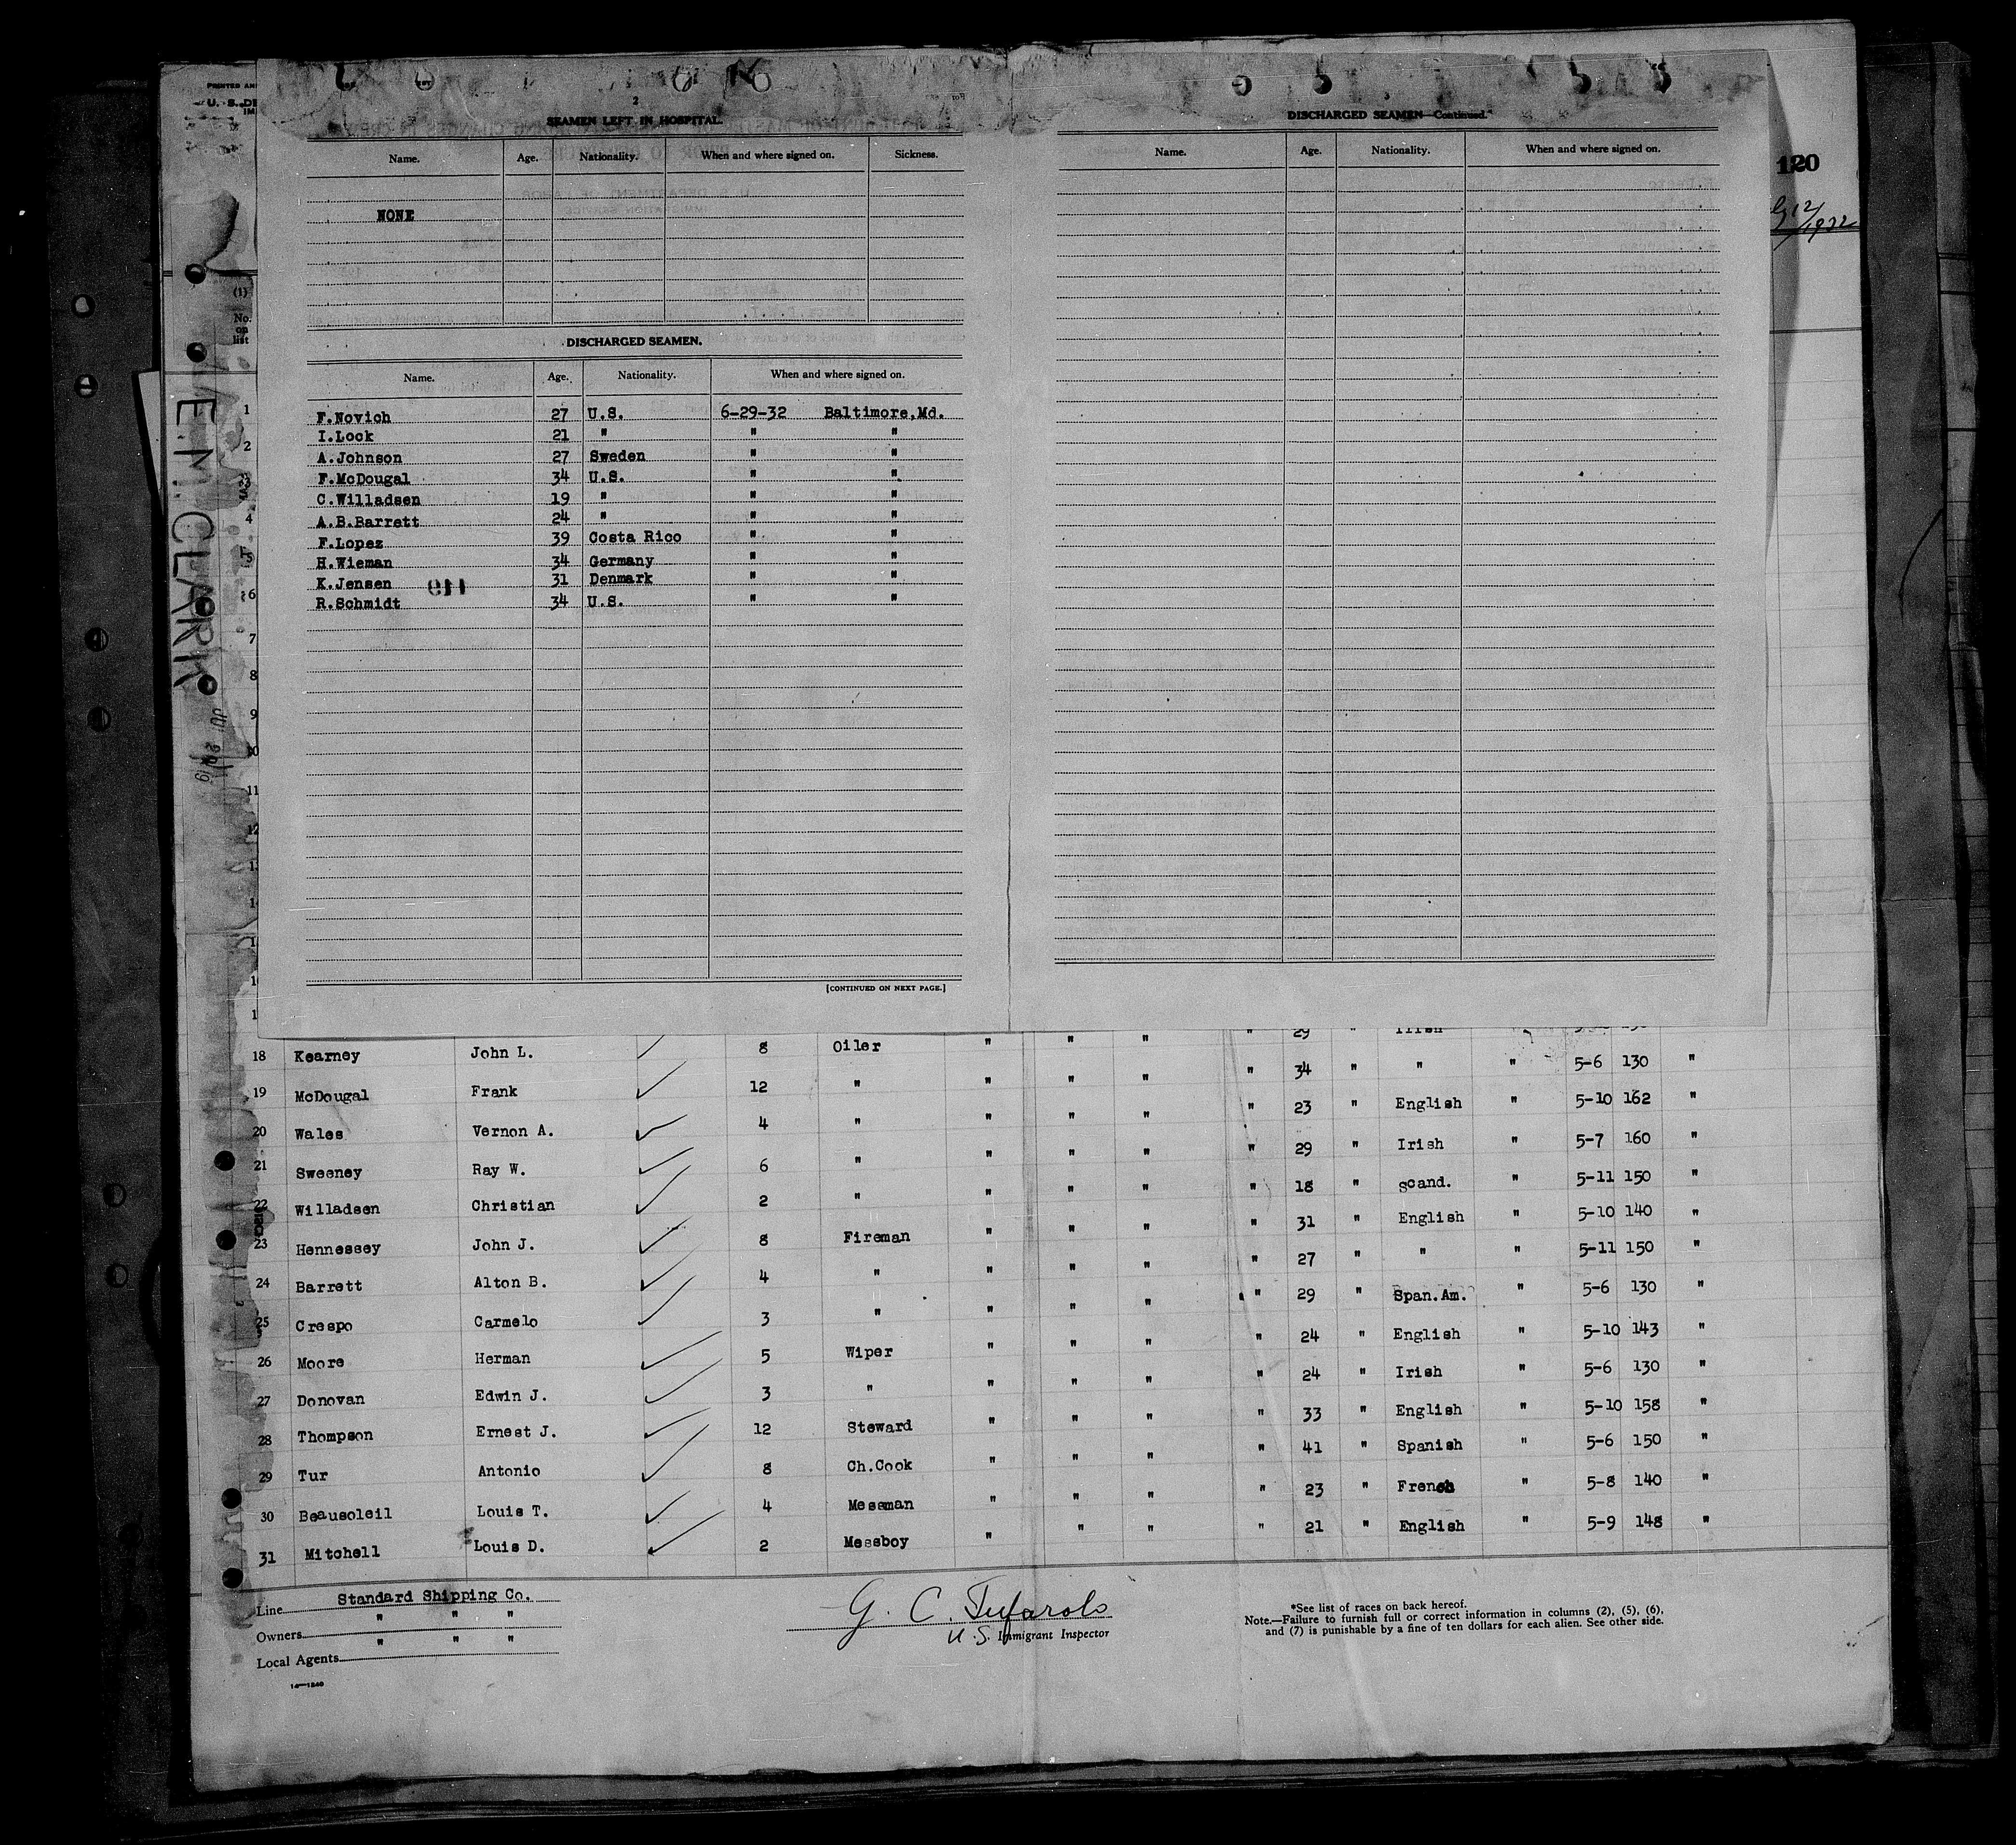 PRINTED AN
U. S. DE
IM
SEAMEN LEFT IN HOSPITAL.
Name. Age. Nationality. When and where signed on. Sickness.
NONE
DISCHARGED SEAMEN.
Name. Age. Nationality. When and where signed on.
F.Novich 27 U.S. 6-29-32 Baltimore,Md.
I.Lock 21 " " "
A.Johnson 27 Sweden " "
F.McDougal 34 U.S. " "
C.Willadsen 19 " " "
A.B.Barrett 24 " " "
F.Lopez 39 Costa Rico " "
H.Wieman 34 Germany " "
K.Jensen 31 Denmark " "
119
R.Schmidt 34 U.S. " "
[CONTINUED ON NEXT PAGE.]
DISCHARGED SEAMEN—Continued.
Name. Age. Nationality. When and where signed on.
120
12/1932
(1)
No. on list
E.M. CLARK
1
2
4
5
6
7
8
9
10
11
12
29 " Irish
18 Kearney John L. 8 Oiler " " " " 34 " " " 5-6 130 "
19 McDougal Frank 12 " " " " " 23 " English " 5-10 162 "
20 Wales Vernon A. 4 " " " " " 29 " Irish " 5-7 160 "
21 Sweeney Ray W. 6 " " " " " 18 " Scand. " 5-11 150 "
22 Willadsen Christian 2 " " " " " 31 " English " 5-10 140 "
23 Hennessey John J. 8 Fireman " " " " 27 " " " 5-11 150 "
24 Barrett Alton B. 4 " " " " " 29 " Span.Am. " 5-6 130 "
25 Crespo Carmelo 3 " " " " " 24 " English " 5-10 143 "
26 Moore Herman 5 Wiper " " " " 24 " Irish " 5-6 130 "
27 Donovan Edwin J. 3 " " " " " 33 " English " 5-10 158 "
28 Thompson Ernest J. 12 Steward " " " " 41 " Spanish " 5-6 150 "
29 Tur Antonio 8 Ch.Cook " " " " 23 " French " 5-8 140 "
30 Beausoleil Louis T. 4 Messman " " " " 21 " English " 5-9 148 "
31 Mitchell Louis D. 2 Messboy " " "
Line Standard Shipping Co.
Owners " " "
Local Agents " " "
14—1240
G. C. Tufarolo
U.S. Immigrant Inspector
*See list of races on back hereof.
Note.—Failure to furnish full or correct information in columns (2), (5), (6),
and (7) is punishable by a fine of ten dollars for each alien. See other side.